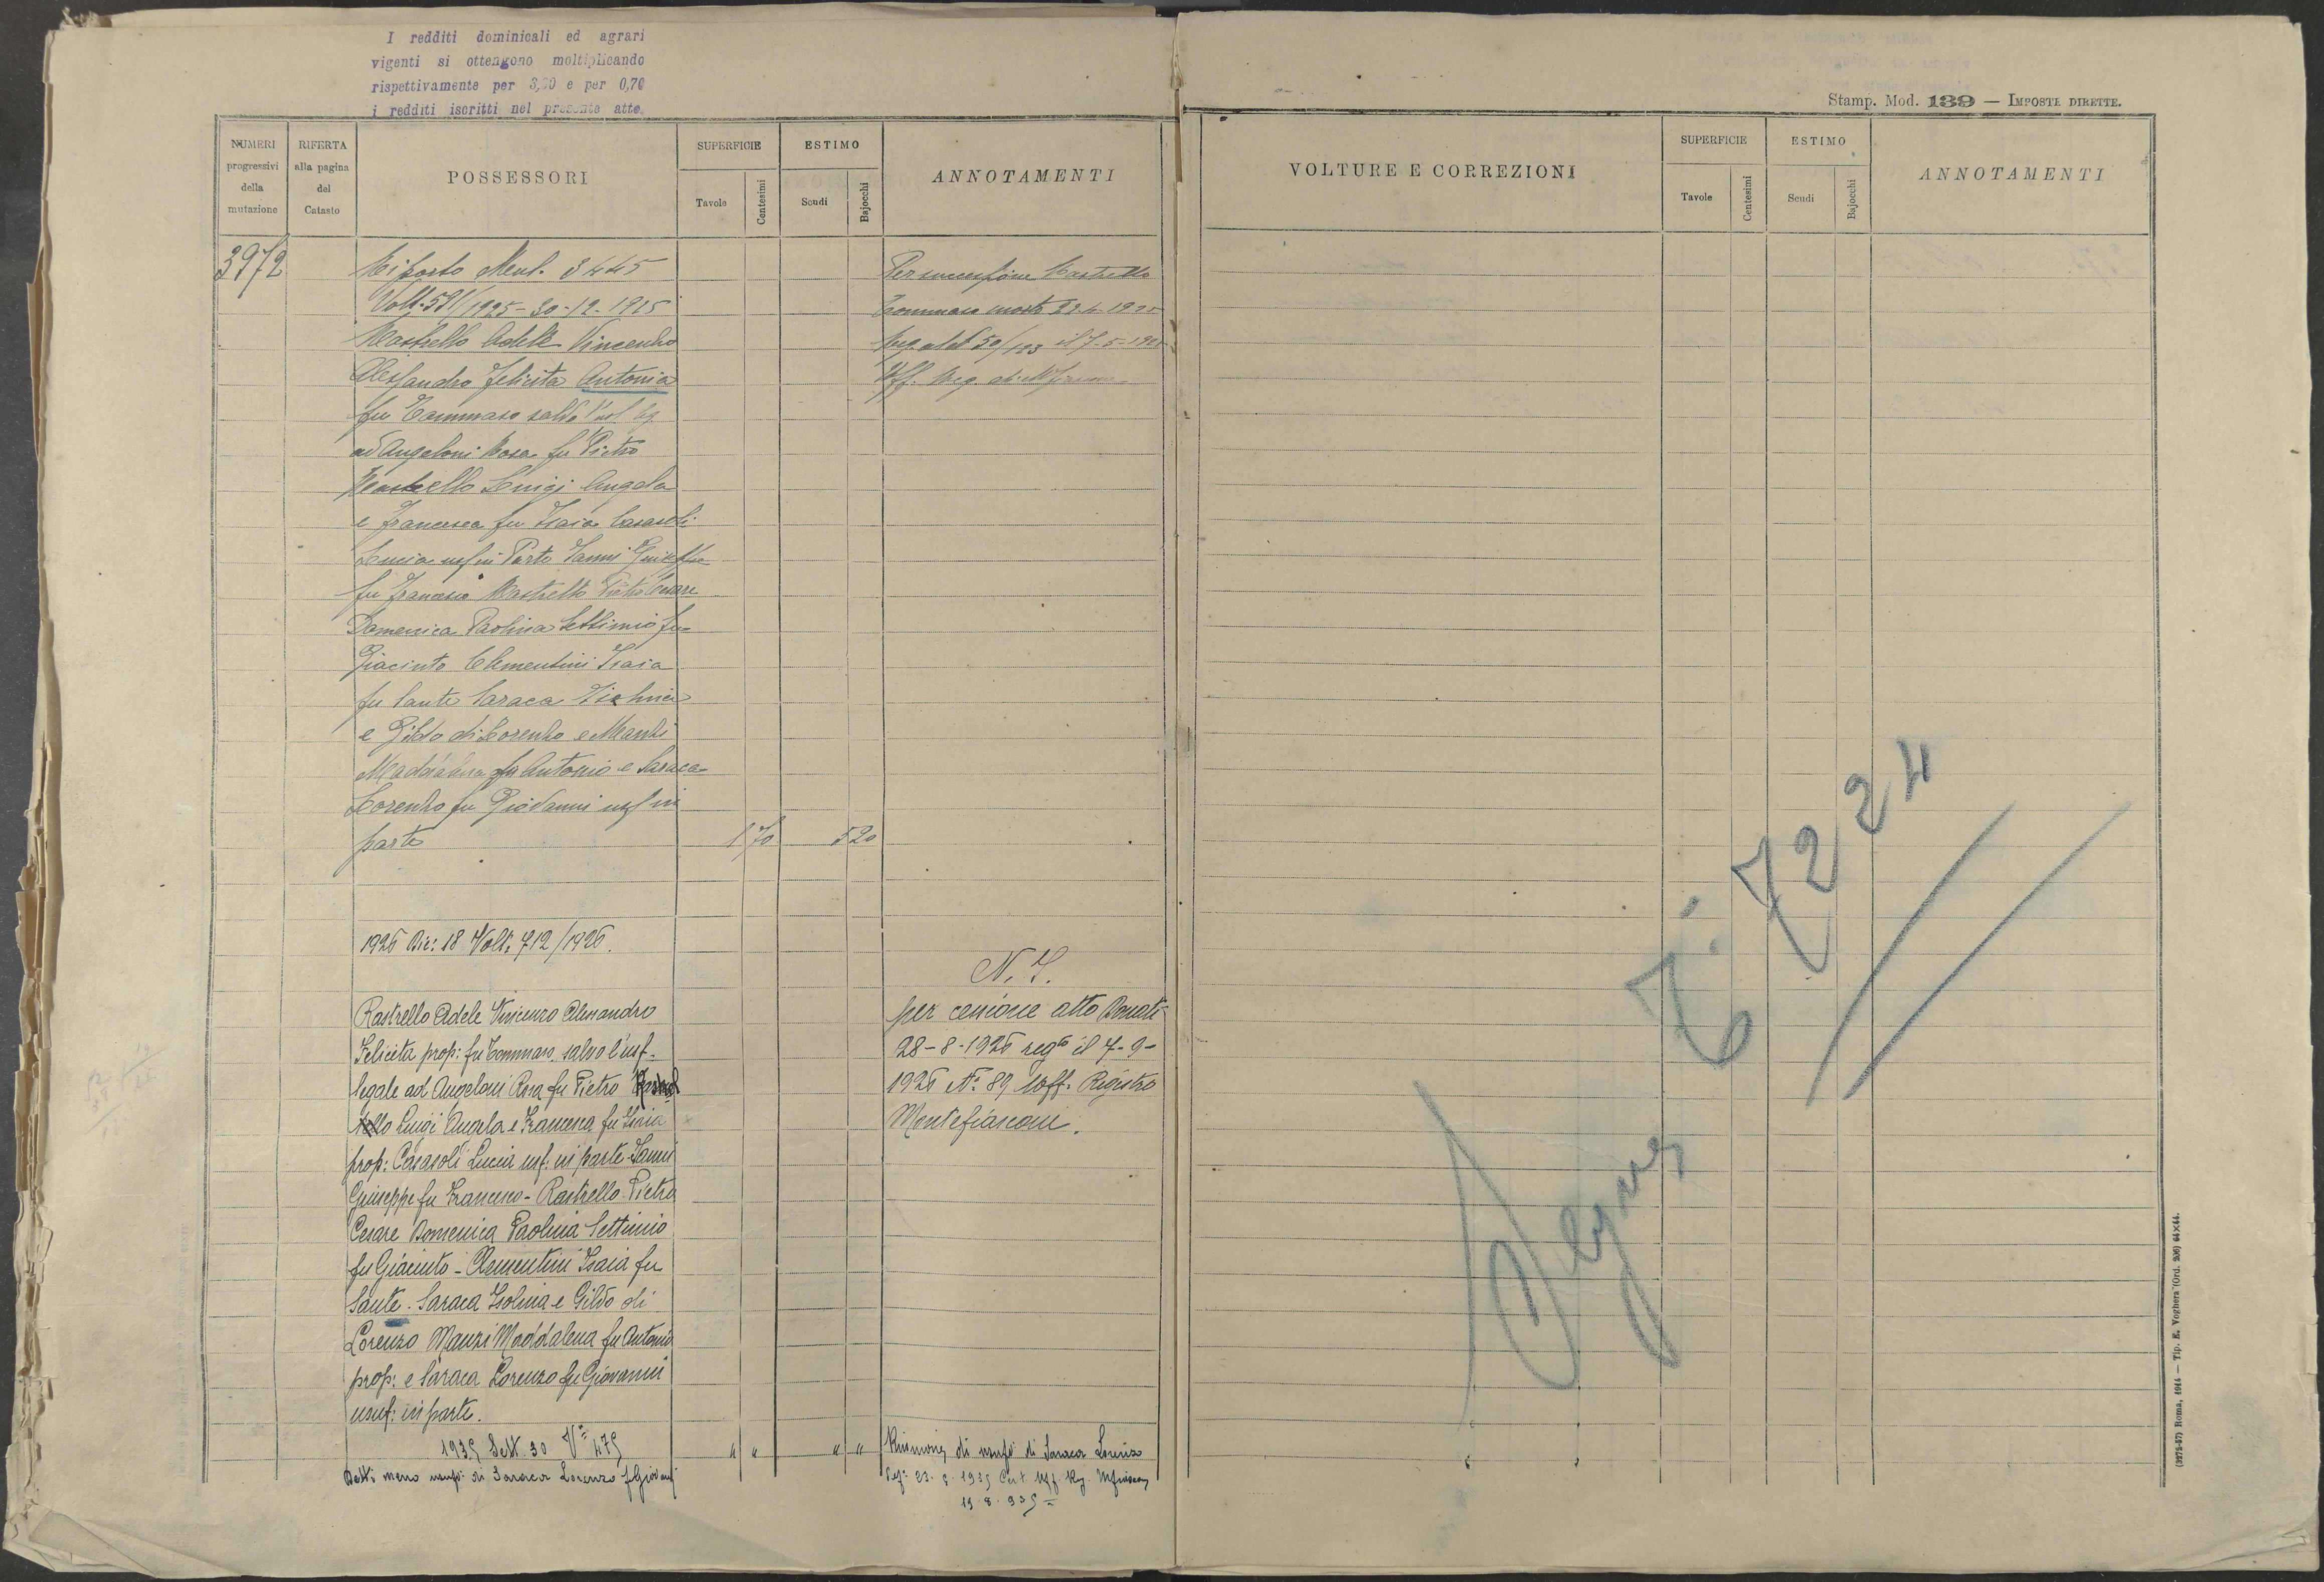 I redditi dominicali ed agrari
vigenti si ottengono moltiplicando
rispettivamente per 3,20 e per 0,70
i redditi iscritti nel presente atto.
Stamp. Mod. 139 — IMPOSTE DIRETTE.
NUMERI progressivi della mutazione
RIFERTA alla pagina del Catasto
POSSESSORI
SUPERFICIE
Tavole
Centesimi
ESTIMO
Scudi
Bajocchi
ANNOTAMENTI
VOLTURE E CORREZIONI
SUPERFICIE
Tavole
Centesimi
ESTIMO
Scudi
Bajocchi
ANNOTAMENTI
3972
Riporto Mut. 3445
Volt. 591/1925 - 30-12-1925
Rastrello Adele Vincenzo
Alessandro Felicita Antonia
fu Tommaso salvo l'usf. lg.
ad Angeloni Rosa fu Pietro
Rastrello Luigi Angela
e Francesca fu Isaia Casasoli
Lucia usf in Parte Sanni Giuseppe
fu Francesco Rastrello Pietro Cesare
Domenica Paolina Settimio fu
Giacinto Clementini Isaia
fu Sante Saraca Isolina
e Gildo di Lorenzo e Manzi
Maddalena fu Antonio e Saraca
Lorenzo fu Giovanni usf in
parte 1 70 5 20
Per successione Rastrello
Tommaso morto 23-4-1925
Reg. al N 50/123 il 7-5-1925
Uff. Reg. di Mfiascone
1926 Dic: 18 Volt. 712/1926.
Rastrello Adele Vincenzo Alessandro
Felicita prop: fu Tommaso, salvo l'usf.
legale ad Angeloni Rosa fu Pietro Rastrel
lo Luigi Angela e Francesca fu Isaia
prop: Casasoli Lucia usf: in parte - Sanni
Giuseppe fu Francesco - Rastrello Pietro
Cesare Domenica Paolina Settimio
fu Giacinto - Clementini Isaia fu
Sante. Saraca Isolina e Gildo di
Lorenzo Manzi Maddalena fu Antonio
prop: e Saraca Lorenzo fu Giovanni
usuf: in parte.
N. S.
per cessione atto Donati
28-8-1926 regº il 7-9-
1926 Nº 89 Uff. Registro
Montefiascone.
1935 Sett. 30 Vª 475 " " " "
Detti meno usufº di Saraca Lorenzo fu Giovanni
Riunione di usufº di Saraca Lorenzo
23. 1935 Cert Uff. Reg. Mfiascone
19.8.935 =
7224
(3272-57) Roma, 1914 — Tip. E. Voghera (Ord. 206) 64×44.